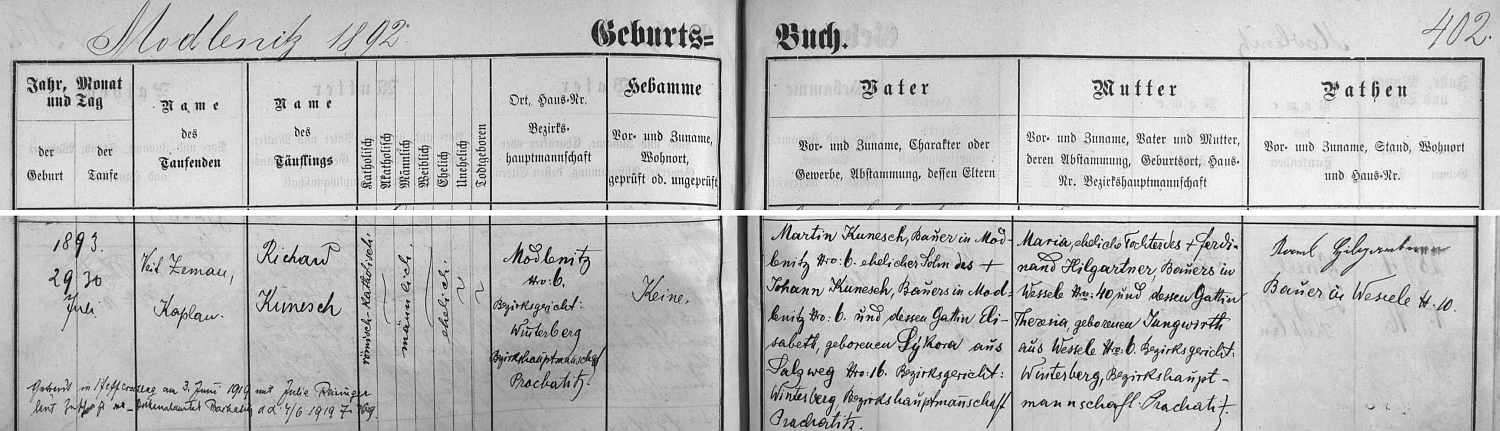 Modlenitz 1892
Geburts=
Buch.
402.
Jahr, Monat
und Tag
der
Geburt
der
Taufe
Name
des
Taufenden
Name
des
Täuflings
Katholisch
Akatholisch
Männlich
Weiblich
Ehelich
Unehelich
Todtgeboren
Ort, Haus-Nr.
Bezirks-
hauptmannschaft
Hebamme
Vor- und Zuname,
Wohnort,
geprüft od. ungeprüft
Vater
Vor- und Zuname, Charakter oder
Gewerbe, Abstammung, dessen Eltern
Mutter
Vor- und Zuname, Vater und Mutter,
deren Abstammung, Geburtsort, Haus-
Nr. Bezirkshauptmannschaft
Pathen
Vor- und Zuname, Stand, Wohnort
und Haus-Nr.
1893.
29 30
Juli
Veit Zeman,
Kaplan.
Richard
Kunesch
römisch-katholisch.
männlich.
ehelich.
Modlenitz
Nro: 6.
Bezirksgericht:
Winterberg
Bezirkshauptmannschaft
Prachatitz.
Keine.
Martin Kunesch, Bauer in Mod-
lenitz Nro: 6. ehelicher Sohn des +
Johann Kunesch, Bauers in Mod-
lenitz Nro: 6. und dessen Gattin Eli-
sabeth, geborenen Sýkora aus
Salzweg Nro: 16. Bezirksgericht:
Winterberg, Bezirkshauptmannschaft
Prachatitz.
Maria, eheliche Tochter des + Ferdi-
nand Hilgartner, Bauers in
Wessele Nro: 40 und dessen Gattin
Theresia, geborenen Jungwirth
aus Wessele Nro: 6. Bezirksgericht:
Winterberg, Bezirkshaupt-
mannschaft Prachatitz.
Bauer in Wessele N. 10.
Getraut in am 3. Juni 1919 mit Julie
laut 4/6 1919